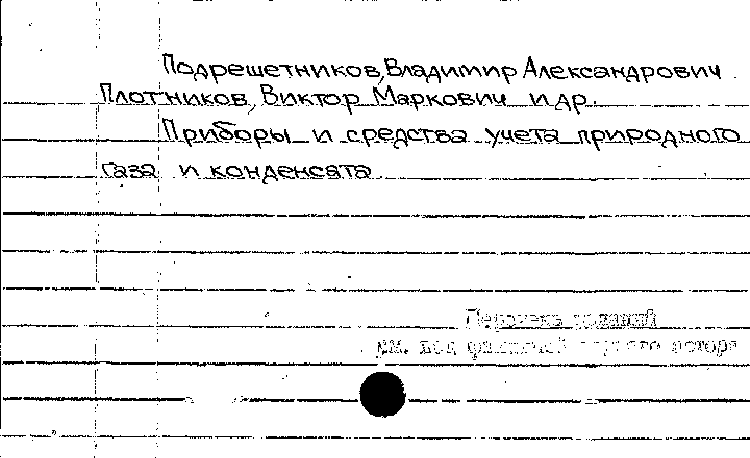 Подрешетников, Владимир Александрович
Плотников, Виктор Маркович и др.
Приборы и средства учета природного
газа и конденсата
Перечень изданий
см. под фамилией первого автора